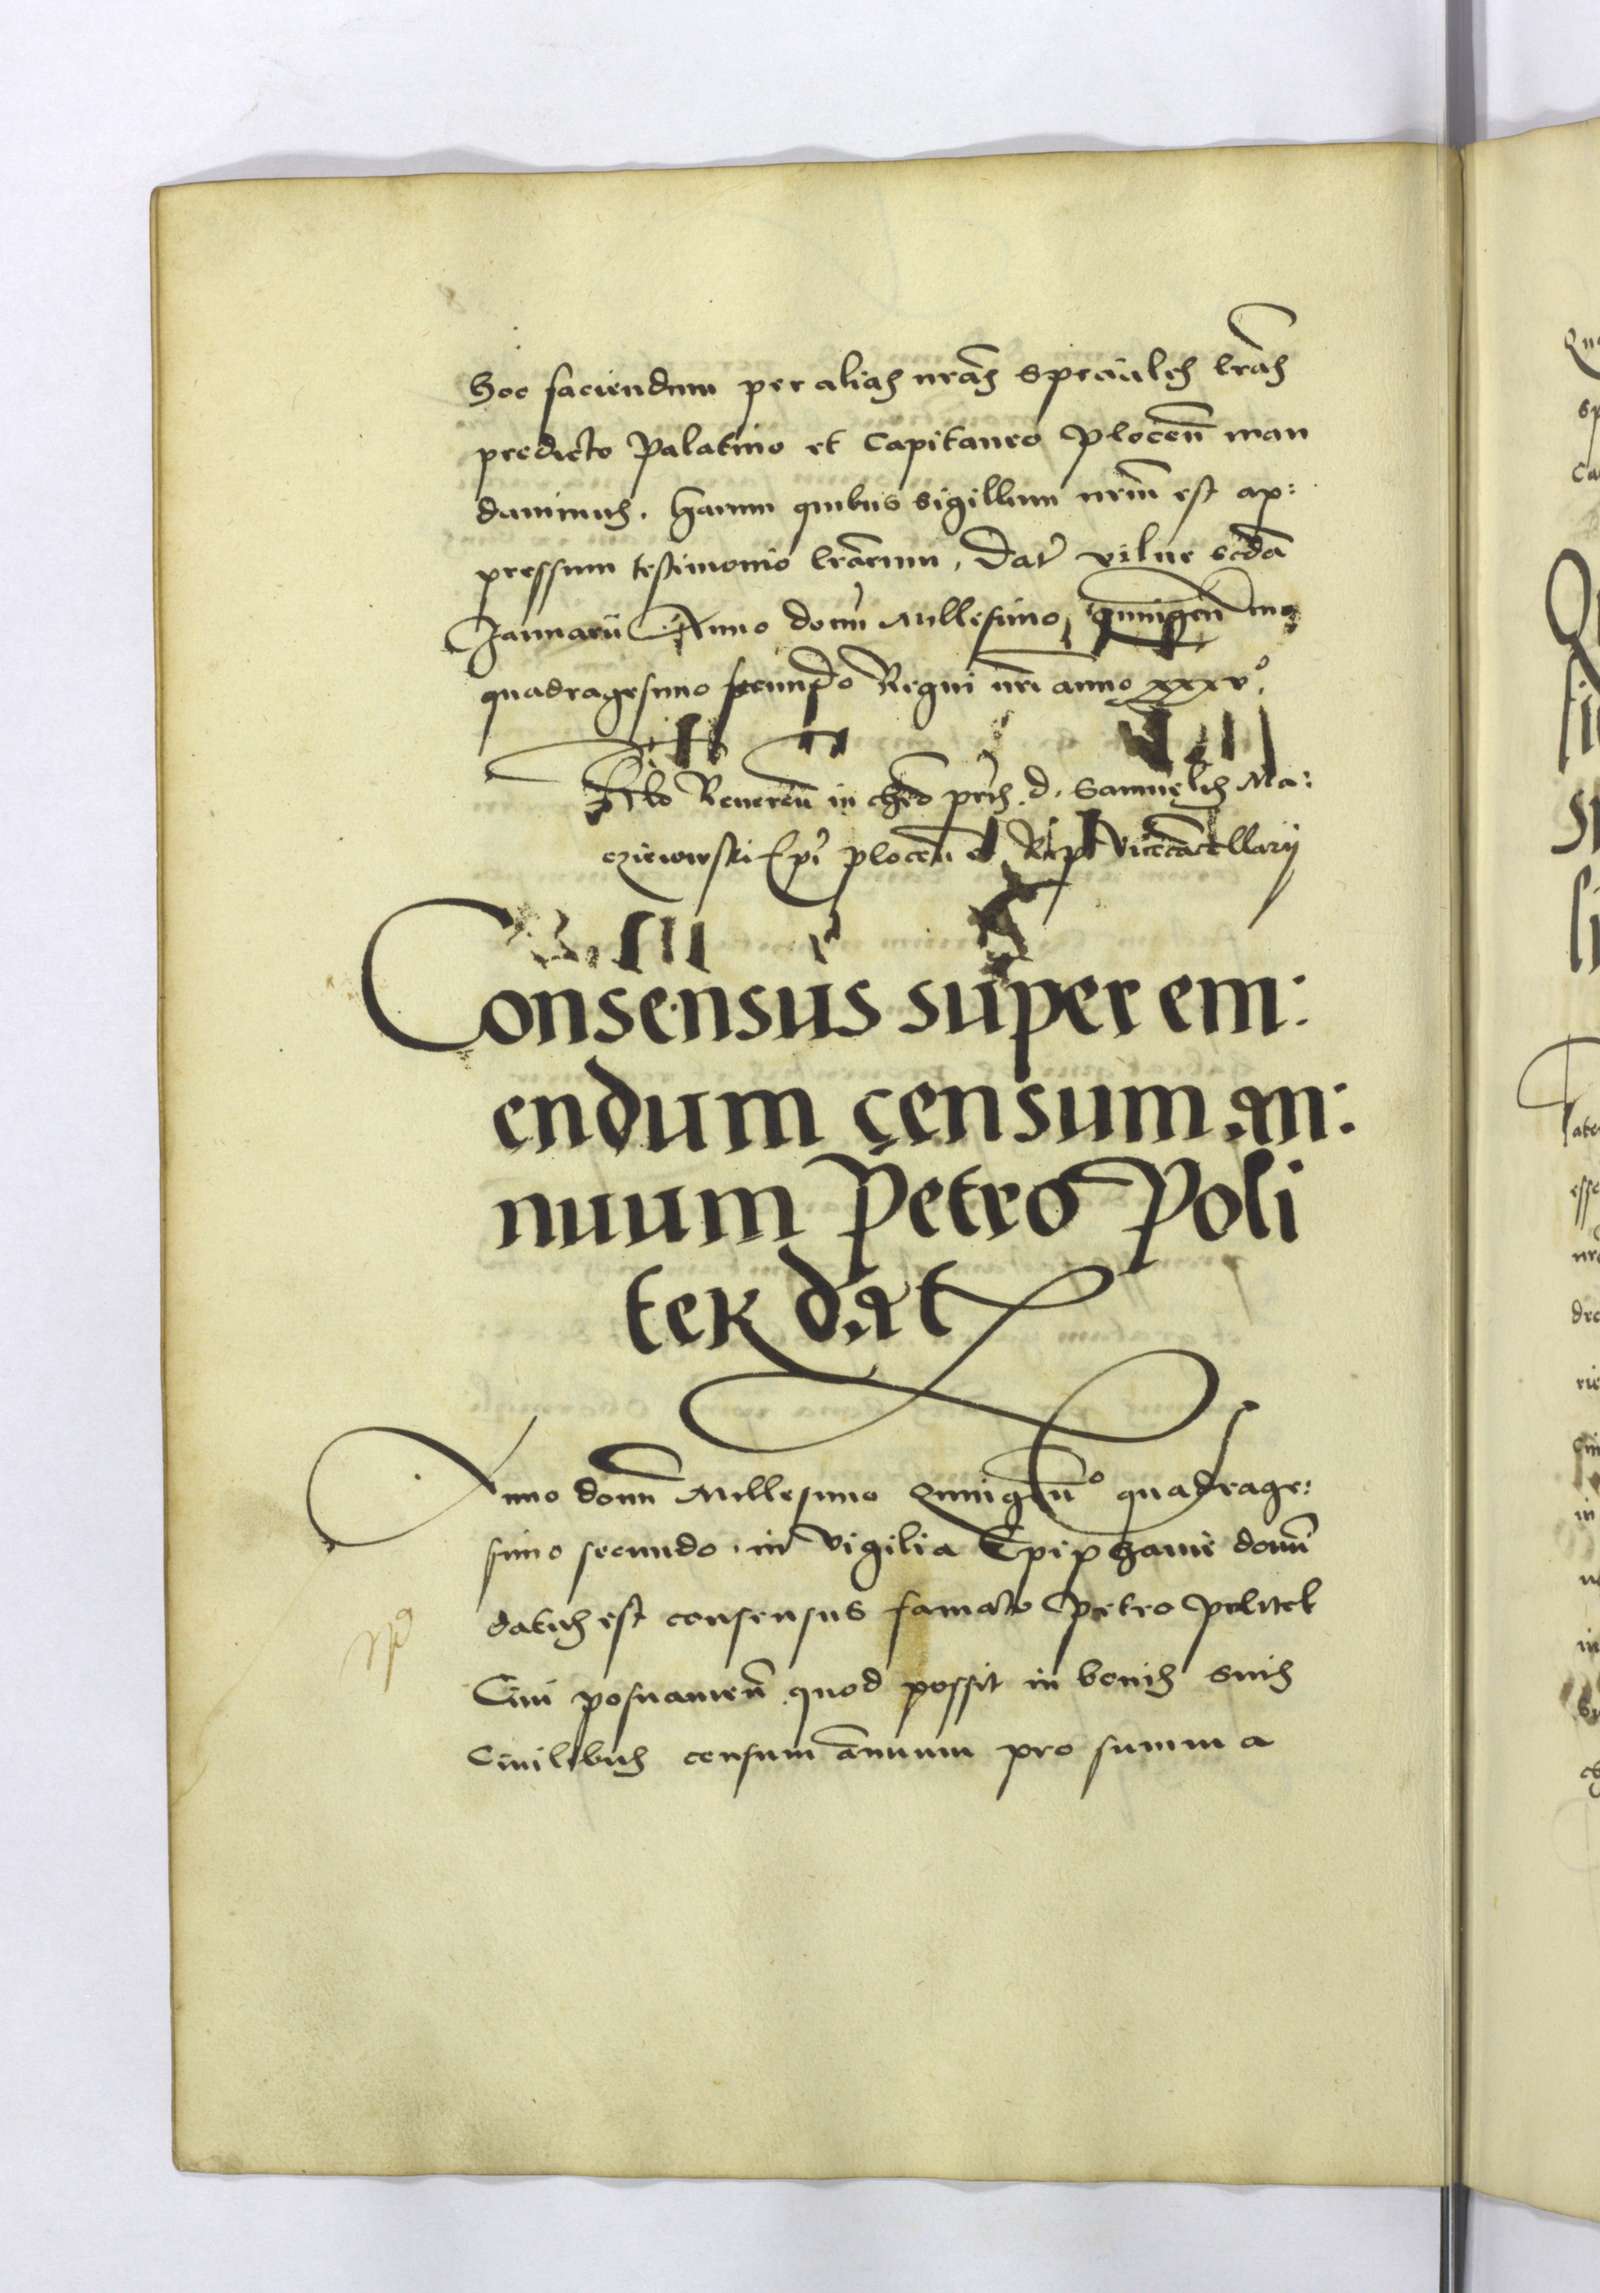 hoc faciendum per alias nras speciales lras
predicto Palatino et Capitaneo Plocen̄ man
damimus. Harum quibus sigillum nrm̄ est ap:
pressum testimonio lrarum, Dat̄ vilne scdā
Januarii Anno domī Millesimo quingen̄ mo
quadragesimo secundo Regni nrī anno xxxvº.
Rlō Reveren̄ in chrō pris. d. Samuelis Ma:
cziewski Epī plocen̄ et R.p. Vicecācellarij
Consensus super em:
endum censum an:
nuum Petro Poli
tek dat
Anno domī Millesimo Quingenº quadrage:
simo secundo. in vigilia Epiphanie domī
datus est consensus famato Petro Politek
Civi posnanien̄ quod possit in bonis suis
Civilibus censum ānuum pro summa